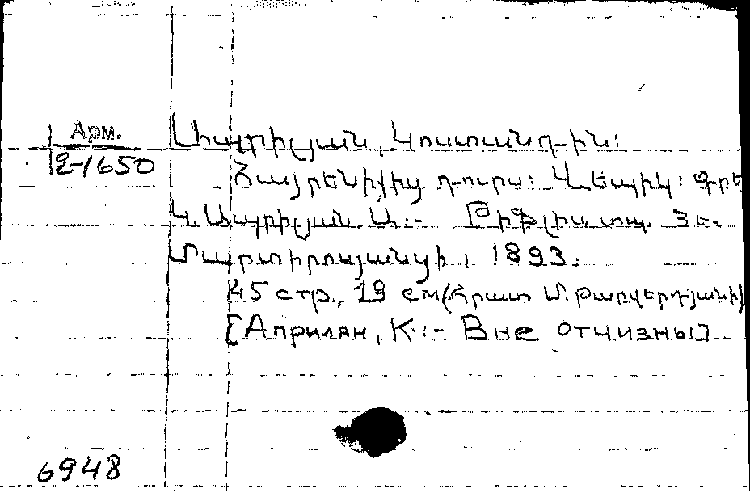 Арм.
2-1650
Ապրիլյան, Կոստանդին։
Հայրենիքից դուրս։ Վեպիկ։ Գրե
Կ. Ապրիլյան. Ա.։- Թիֆլիս. տպ. Յ.
Մարտիրոսյանցի, 1893.
45 стр., 19 см (Հրատ. Մ. Թարվերդյանի)
[Априлян, К.:- Вне отчизны]
6948